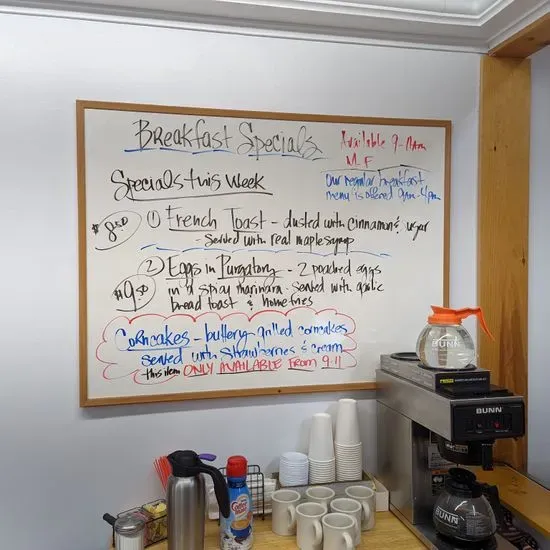 Breakfast Specials
Available 9-11am
M-F
Our regular breakfast
menu is offered 9am-4pm
Specials this Week
$8.50 ① French Toast - dusted with cinnamon & sugar
- served with real maple syrup
② Eggs in Purgatory - 2 poached eggs
$9.50 in a spicy marinara - served with garlic
bread toast & homefries
Corncakes - buttery grilled corncakes
served with strawberries & cream
this item ONLY AVAILABLE FROM 9-11
BUNN
BUNN
BUNN